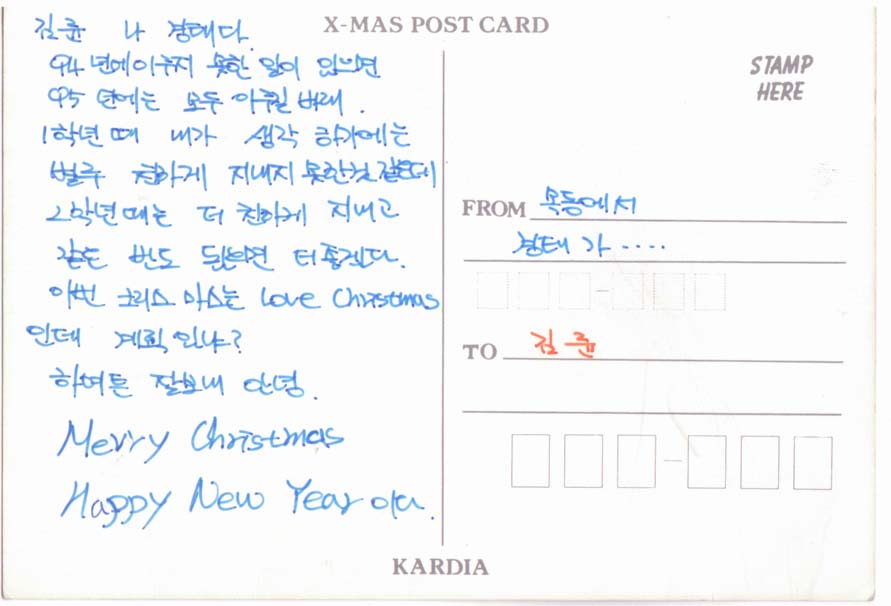 X-MAS POST CARD
김륜 나 경태다.
94년에 이루지 못한 일이 있으면
95년에는 모두 이뤄질 바래.
1학년때 내가 생각 하기에는
별루 친하게 지내지 못한것 같은데
2학년때는 더 친하게 지내고
같은 반도 됬으면 더 좋겠다.
이번 크리스마스는 Love Christmas
인데 계획 있냐?
하여튼 잘보내 안녕.
Merry Christmas
Happy New Year 이다.
STAMP
HERE
FROM 목동에서
경태가 ....
TO 김륜
KARDIA